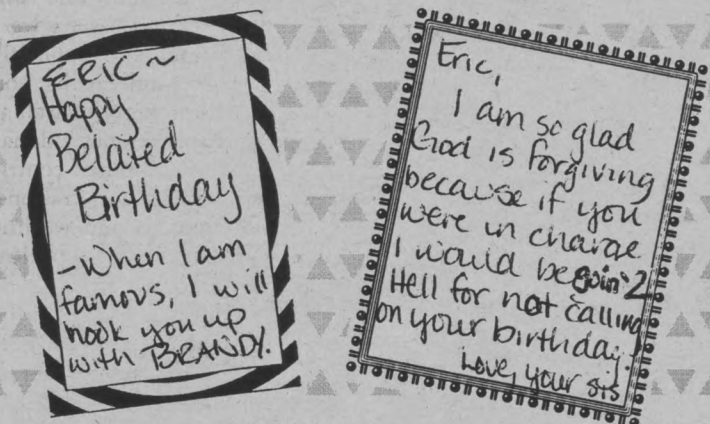 ERIC~
Happy
Belated
Birthday
-When I am
famous, I will
hook you up
with BRANDY.
Eric,
I am so glad
God is forgiving
because if you
were in charge
I would be goin' 2
Hell for not calling
on your birthday.
Love, your sis